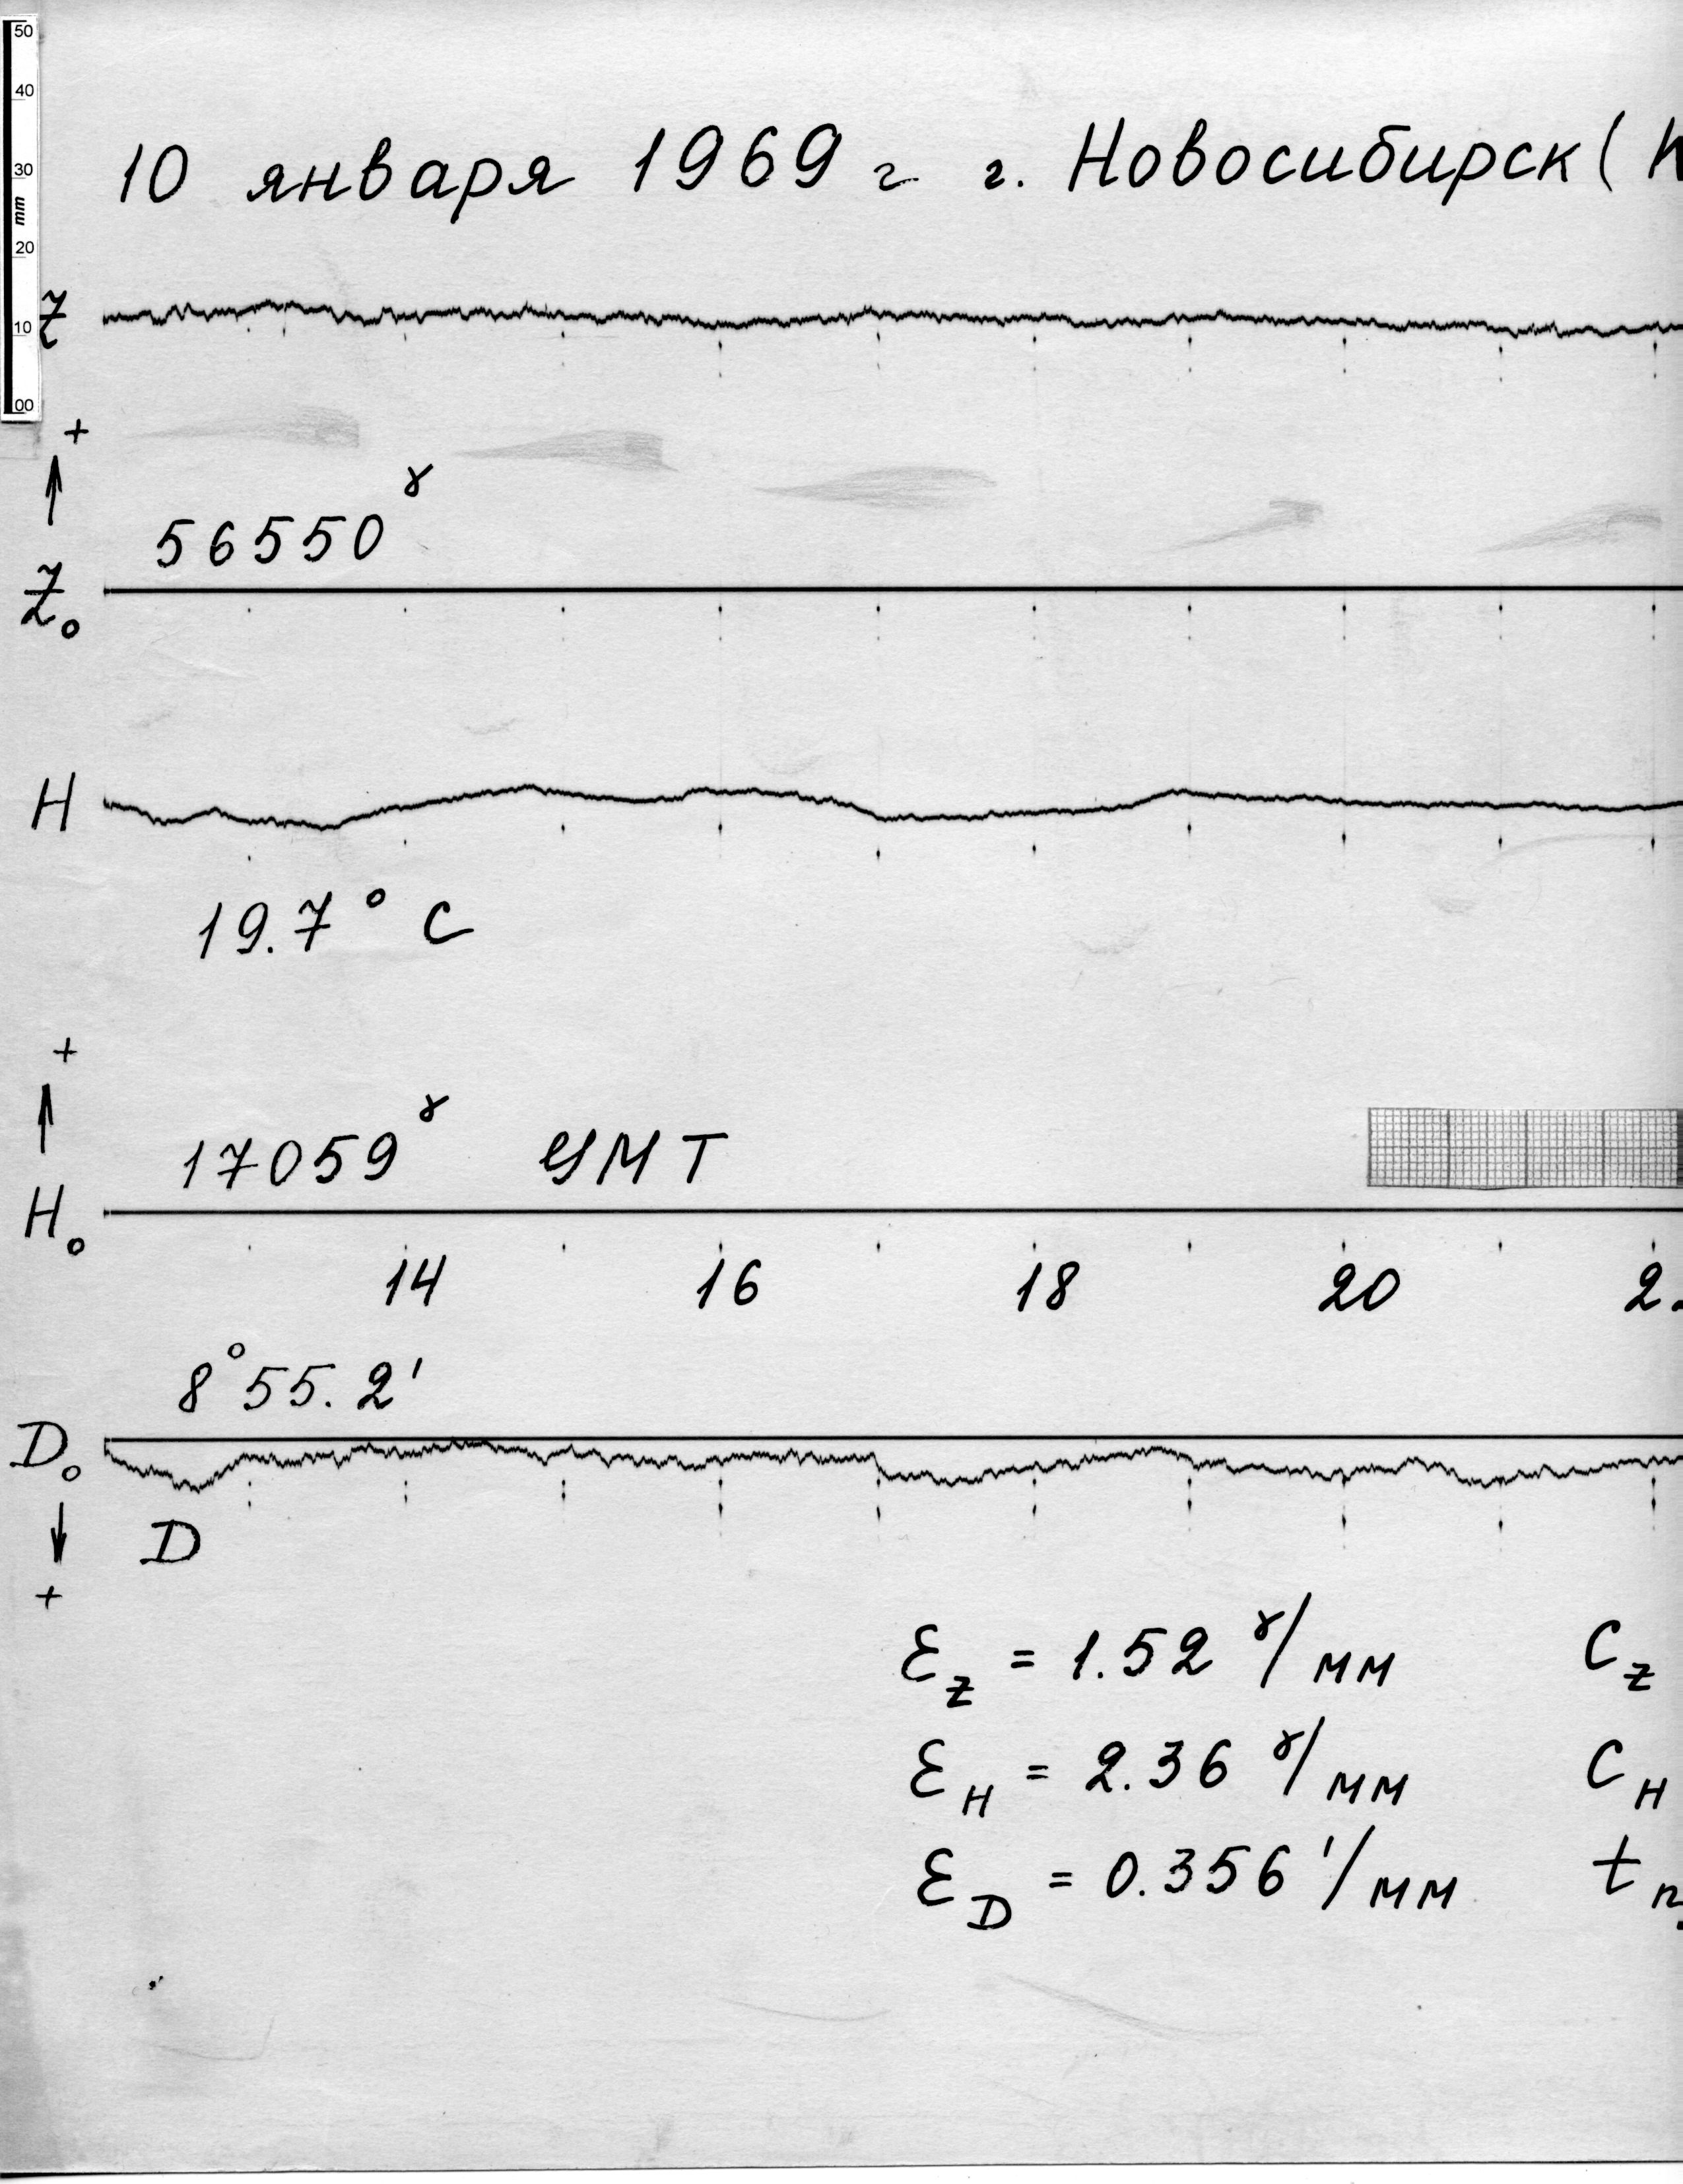 50
40
30
mm
20
10
00
10 января 1969 г г. Новосибирск (
Z
+
56550 γ
Z₀
H
19.7° C
+
17059 γ УМТ
H₀
14 16 18 20
8° 55.2'
D₀
D
+
ε_Z = 1.52 γ/мм C_Z
ε_H = 2.36 γ/мм C_H
ε_D = 0.356 '/мм t